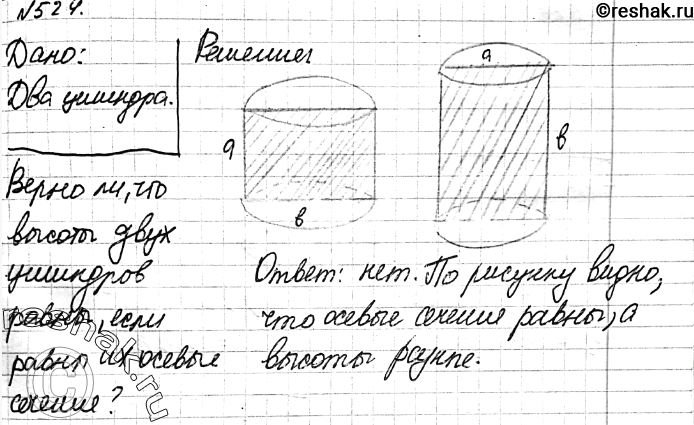 ©reshak.ru
№524.
Дано:
Решение
Два цилиндра.
a
a
в
в
Верно ли, что
высоты двух
цилиндров
равны, если
равны их осевые
сечение?
Ответ: нет. По рисунку видно,
что осевые сечение равны, а
высоты разные.